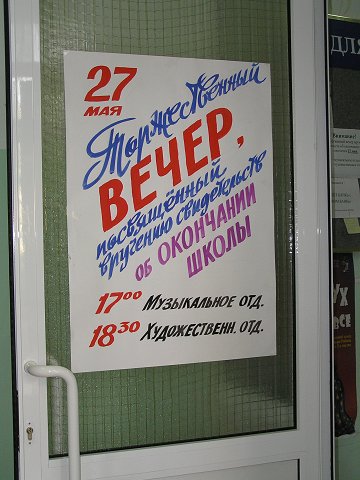 27
МАЯ
Торжественный
ВЕЧЕР,
посвящённый
вручению свидетельств
об ОКОНЧАНИИ
ШКОЛЫ
17⁰⁰ Музыкальное отд.
18³⁰ Художественн. отд.
ДЛЯ
Внимание!